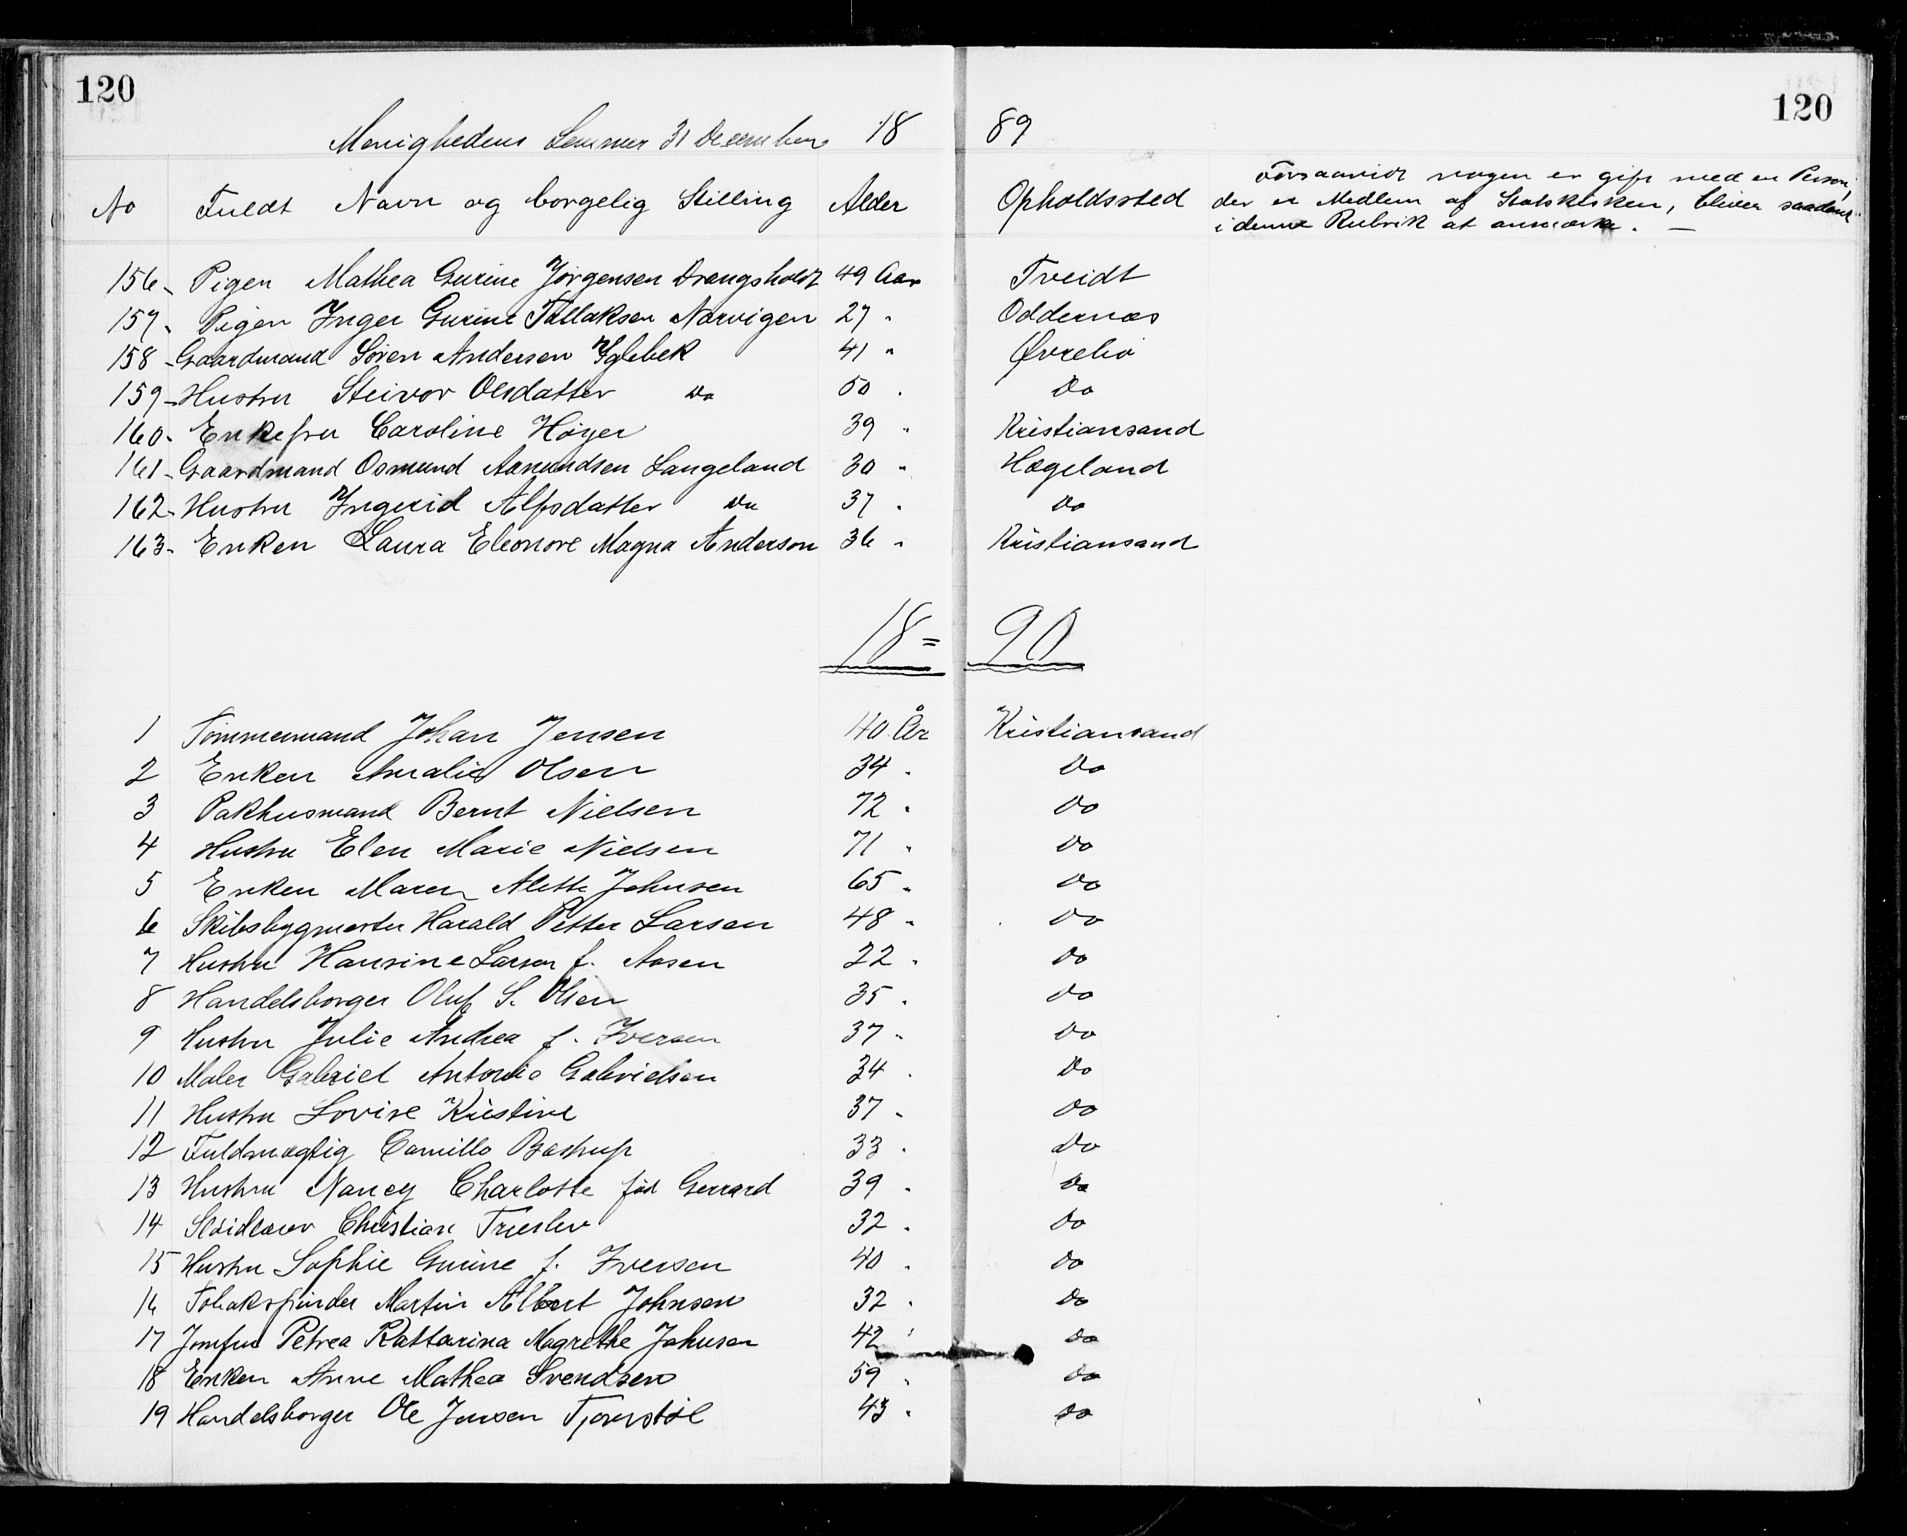 120 120
Menighedens Lemmer 31 December 18 89
No Fuldt Navn og borgelig Stilling Alder Opholdssted Forsaavidt nogen er gift med en Person,
der er Medlem af Statskirken, bliver saadant
i denne Rubrik at anmærke. —
156 - Pigen Mathea Gurine Jörgensen Drangsholdt 49 Aar Tveidt
157 - Pigen Inger Gurine Tallaksen Narvigen 27 " Oddernæs
158 - Gaardmand Sören Andersen Iglebek 41 " Øvrebø
159 - Hustru Steivor Olsdatter Do 50 " Do
160 - Enkefru Caroline Höyer 39 " Kristiansand
161 - Gaardmand Osmund Aanundsen Langeland 30 " Hægeland
162 - Hustru Ingerid Alfsdatter Do 37 " Do
163 - Enken Laura Eleonore Magna Anderson 36 " Kristiansand
18 = 90
1 Tömmermand Johan Jensen 40 År Kristiansand
2 Enken Amalie Olsen 34 " Do
3 Pakhusmand Bernt Nielsen 72 " Do
4 Hustru Elen Marie Nielsen 71 " Do
5 Enken Maren Alette Johnsen 65 " Do
6 Skibsbygmester Harald Petter Larsen 48 " Do
7 Hustru Hansine Larsen f. Aasen 22 " Do
8 Handelsborger Oluf S. Olsen 35 " Do
9 Hustru Julie Andrea f. Iversen 37 " Do
10 Maler Gabriel Antonio Gabrielsen 34 " Do
11 Hustru Lovise Kristine 37 " Do
12 Fuldmægtig Camillo Bastrup 33 " Do
13 Hustru Nancy Charlotte föd Gerrard 39 " Do
14 Christian 32 " Do
15 Hustru Sophie Gurine f. Iversen 40 " Do
16 Tobakspinder Martin Albert Johnsen 32 " Do
17 Jomfru Petrea Kattarina Magrethe Johnsen 42 " Do
18 Enken Anne Mathea Svendsen 59 " Do
19 Handelsborger Ole Jensen 43 " Do